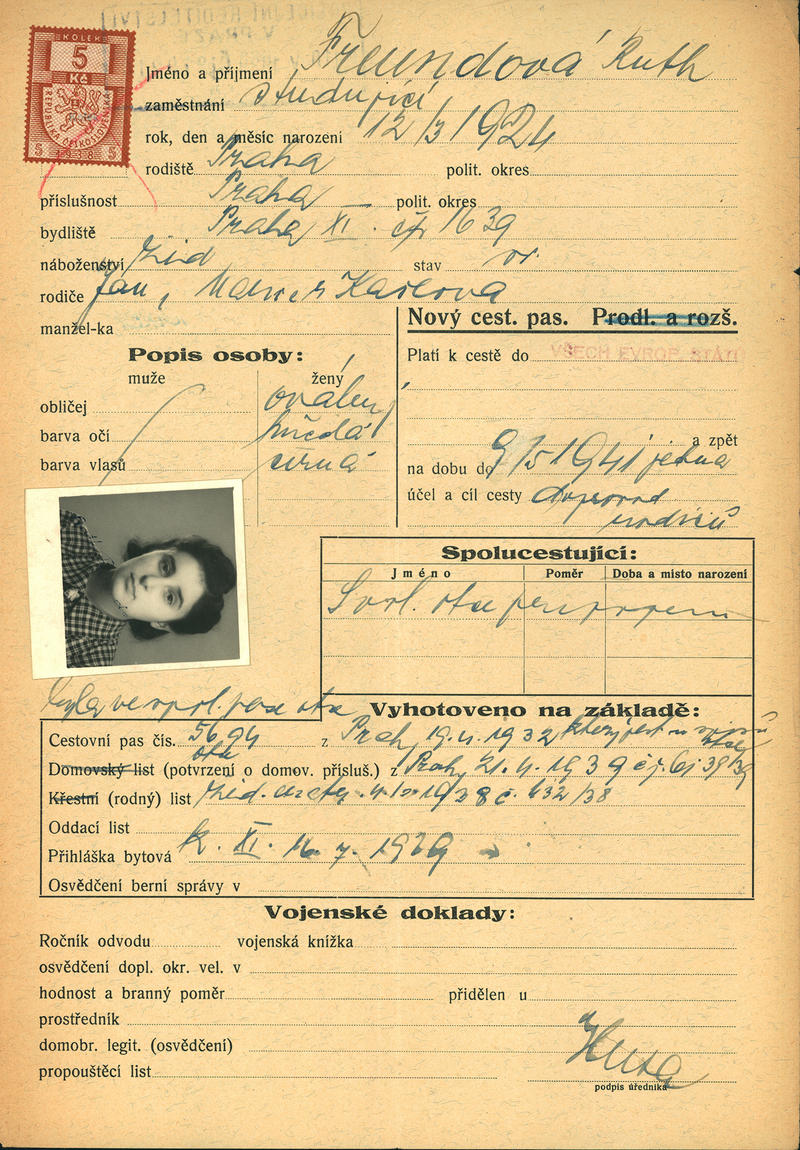 KOLEK
5
Kč
REPUBLIKA ČESKOSLOVENSKÁ
5 1938 5
Jméno a příjmení Freundová Ruth
zaměstnání studující
rok, den a měsíc narození 12/3 1924
rodiště Praha polit. okres
příslušnost Praha polit. okres
bydliště Praha XI. čp 1639
náboženství žid stav sv.
rodiče Jan, Karlova
manžel-ka
Nový cest. pas. Prodl. a rozš.
Popis osoby:
muže ženy
obličej oválný
barva očí hnědá
barva vlasů černá
Platí k cestě do VŠECH EVROP. STÁTŮ
a zpět
na dobu do 9/5 1941 jedna
účel a cíl cesty doprovod
rodičů
Spolucestující:
Jméno Poměr Doba a místo narození
Byla ve spol. pase otce
Vyhotoveno na základě:
Cestovní pas čís. 5694 z Prahy 19.4.1932 který jest u spisů
otce
Domovský list (potvrzení o domov. přísluš.) z Prahy 21.4.1939 čj. 39
Křestní (rodný) list žid. 1938 č. 632/38
Oddací list
Přihláška bytová k. XI. 16.7.1929
Osvědčení berní správy v
Vojenské doklady:
Ročník odvodu vojenská knížka
osvědčení dopl. okr. vel. v
hodnost a branný poměr přidělen u
prostředník
domobr. legit. (osvědčení)
propouštěcí list
podpis úředníka